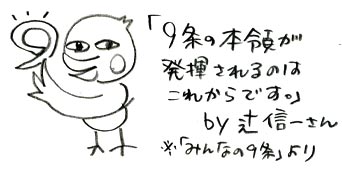 9
「9条の本領が
発揮されるのは
これからです。」
by 辻信一さん
※「みんなの9条」より